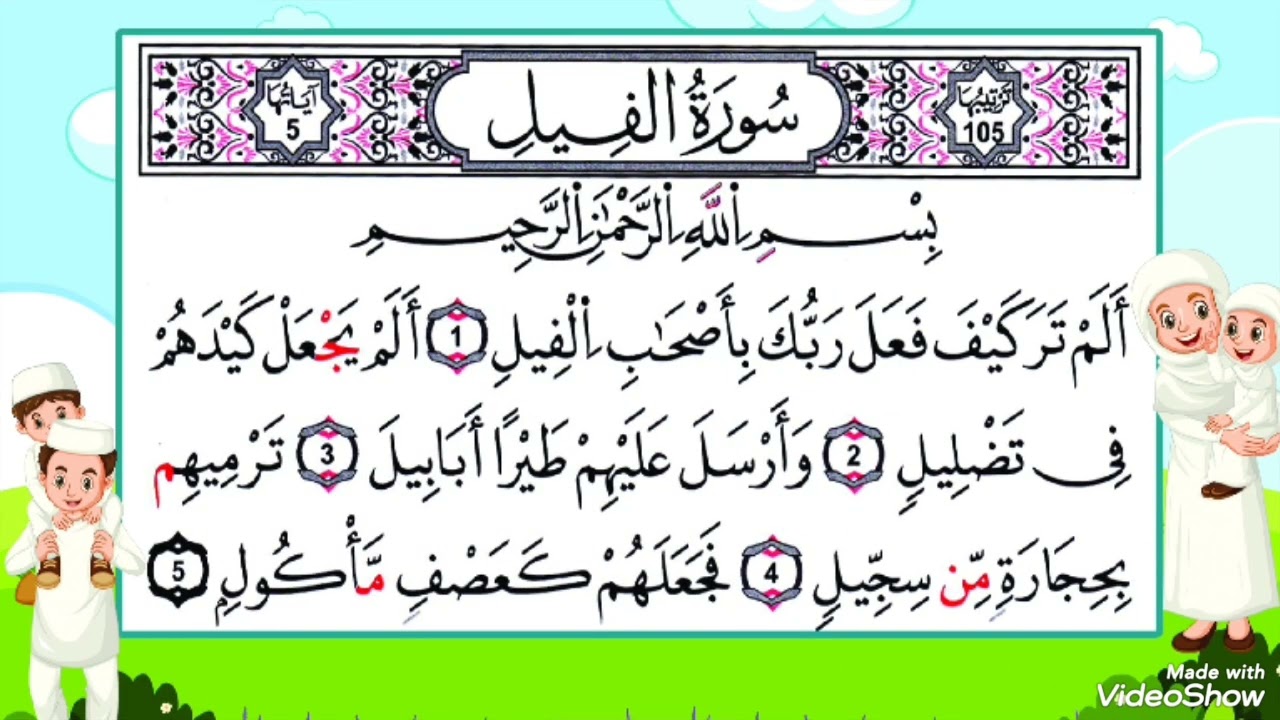 ترتيبها 105
سُورَةُ الفِيلِ
آيَاتُهَا 5
بِسْمِ اِ۬للَّهِ اِ۬لرَّحْمَٰنِ اِ۬لرَّحِيمِ
أَلَمْ تَرَ كَيْفَ فَعَلَ رَبُّكَ بِأَصْحَٰبِ اِ۬لْفِيلِ 1 أَلَمْ يَجْعَلْ كَيْدَهُمْ
فِي تَضْلِيلٍ 2 وَأَرْسَلَ عَلَيْهِمْ طَيْرًا أَبَابِيلَ 3 تَرْمِيهِم
بِحِجَارَةٍ مِّن سِجِّيلٍ 4 فَجَعَلَهُمْ كَعَصْفٍ مَّأْكُولٍ 5
Made with
VideoShow